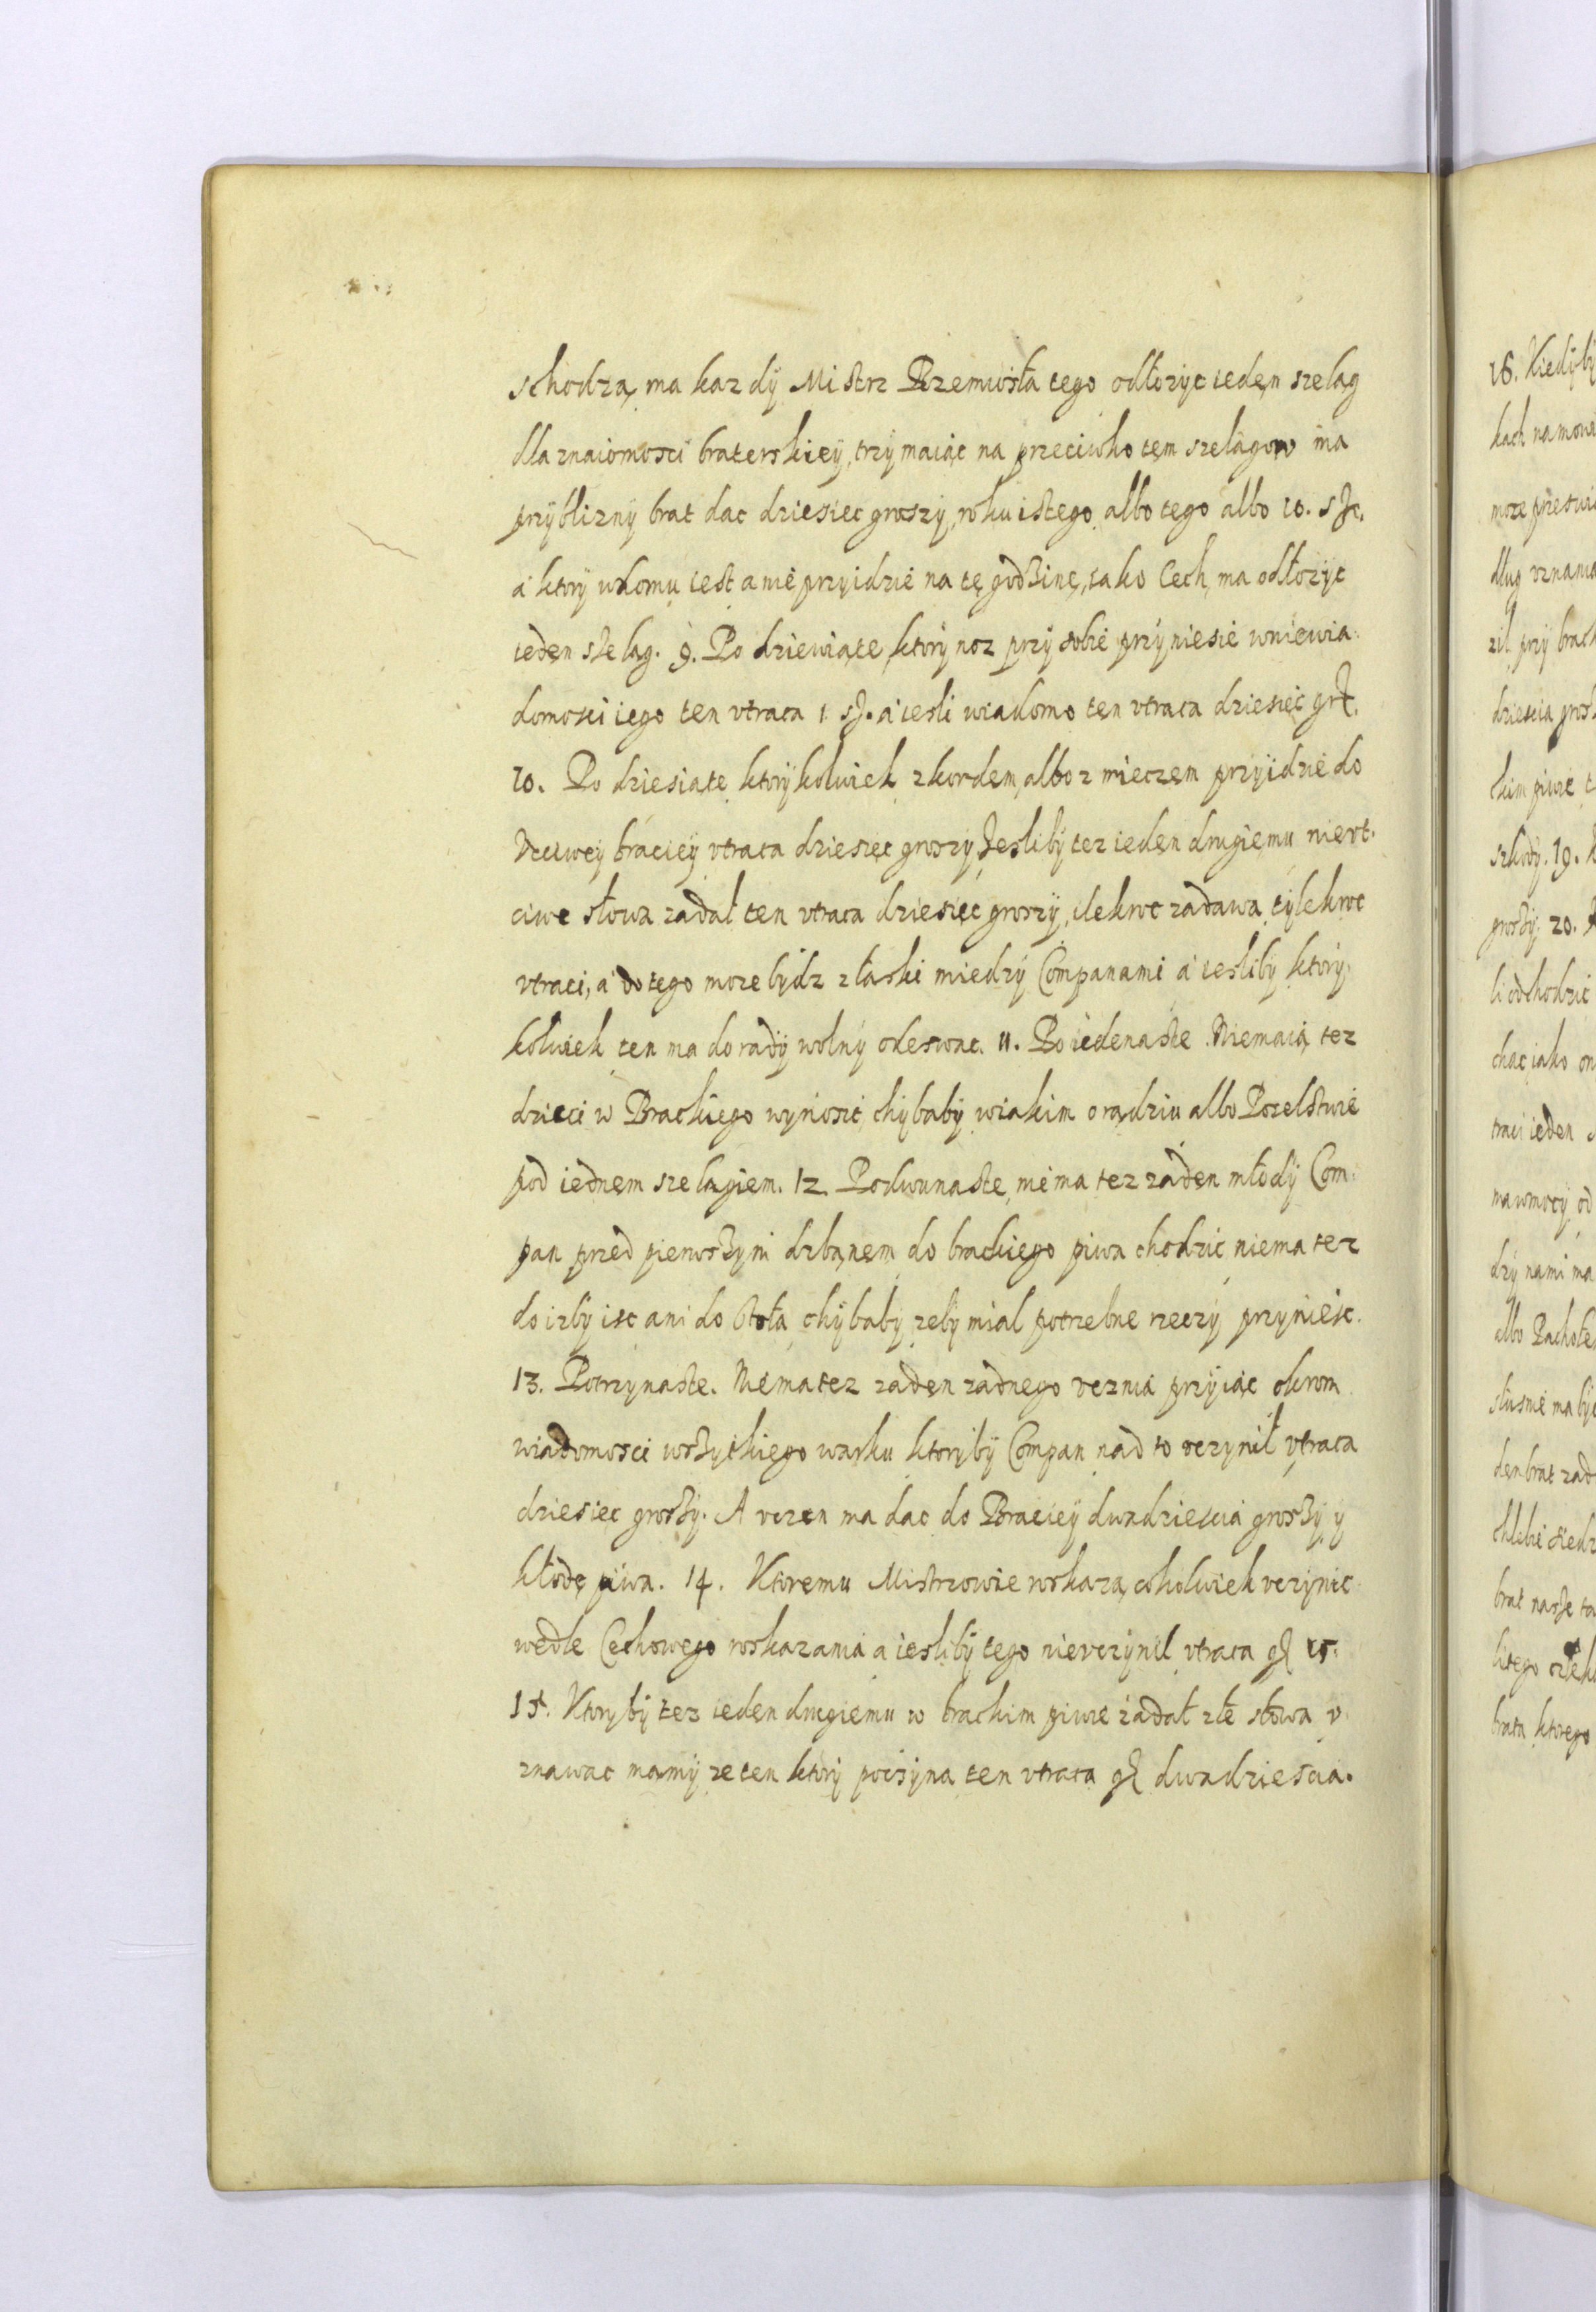 schodzą, ma kazdy Mistrz Rzemiosła tego odłozyc ieden szeląg
dla znaiomosci braterskiey, trzymaiąc na przeciwko tem szelągow ma
przyblizny brat dac dziesiec groszy, roku istego albo tego albo 10.
a ktory wdomu iest a nie przyidzie na tę godzinę, iako Cech, ma odłozyc
ieden szeląg. 9. Po dziewiąte, ktory noz przy sobie przyniesie wniewia
domosci iego ten vtraca 1 sz. a iesli wiadomo ten vtraca dziesięc gr
10. Po dziesiąte ktorykolwiek zkordem, albo z mieczem przyidzie do
Vcciwey braciey vtraca dziesięc groszy Jesliby tez ieden drugiemu nievt.
ciwe słowa zadał ten vtraca dziesięc groszy, ilekroc zadawa, tylekroc
vtraci, a do tego moze bydz złaski miedzy Companami a iesliby ktory
kolwiek ten ma do rady wolny odeswac. 11. Po iedenaste. Niemaią tez
dzieci w Brackiego wynosic, chybaby wiakim orądziu albo Poselstwie
pod iednem szelagiem. 12. Podwunaste, niema tez zaden młody Com
pan przed pierwszym dzbanem do brackiego piwa chodzic niema tez
do izby isc ani do Stoła chybaby zeby mial potrzebne rzeczy przyniesc.
13. Potrzynaste. Niema tez zaden zadnego vcznia przyiąc okrom
wiadomosci wszytkiego warku ktoryby Compan nad to vczynił vtraca
dziesiec groszy. A vczen ma dac do Braciey dwadziescia groszy y
kłodę piwa. 14. Ktoremu Mistrzowie roskazą cokolwiek vczynic
wedle Cechowego roskazania a iesliby tego nievczynil vtraca gr 15.
15. Ktoryby tez ieden drugiemu w brackim piwe zadał złe słowa v
znawac mamy ze ten ktory poczyna ten vtraca gr dwadziescia.
16. Kiedyby
kach na
moze
dług vznania
zil przy brack
dziescia gros
kim piwe
szkody. 19.
groszy 20.
li odchodzic
chac iako on
traci ieden
ma wmocy od
dzy nami ma
albo Pachołe
słusnie ma byc
den brat zad
chlebie siedz
brat nasze
litego człek
brata ktorego